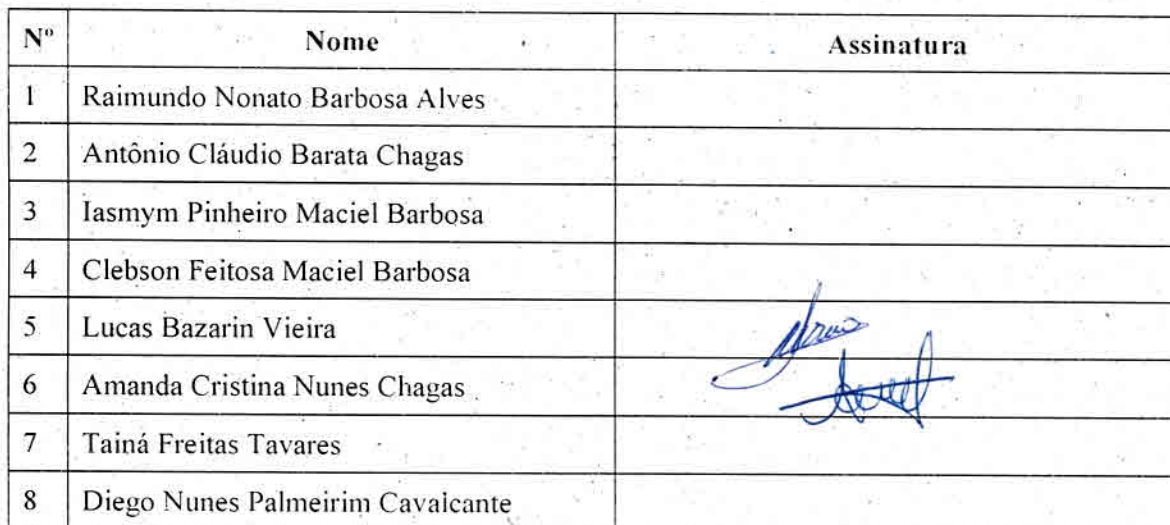 Nº Nome Assinatura
1 Raimundo Nonato Barbosa Alves
2 Antônio Cláudio Barata Chagas
3 Iasmym Pinheiro Maciel Barbosa
4 Clebson Feitosa Maciel Barbosa
5 Lucas Bazarin Vieira
6 Amanda Cristina Nunes Chagas
7 Tainá Freitas Tavares
8 Diego Nunes Palmeirim Cavalcante